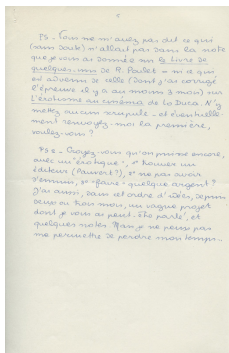 5
PS - Vous ne m'avez pas dit ce qui
(sans doute) n'allait pas dans la note
que je vous ai donnée sur Le Livre de
quelques-uns de R. Poulet - ni ce qui
est advenu de celle (dont j'ai corrigé
l'épreuve il y a au moins 3 mois) sur
L'érotisme au cinéma de Lo Duca. N'y
mettez aucun scrupule - et éventuelle-
ment renvoyez-moi la première,
voulez-vous ?
PS 2 - Croyez-vous qu'on puisse encore,
avec un "érotique", 1° trouver un
éditeur (Pauvert ?), 2° ne pas avoir
d'ennuis, 3° - faire - quelque argent ?
J'ai aussi, dans cet ordre d'idées, depuis
deux ou trois mois, un vague projet
dont je vous ai peut-être parlé, et
quelques notes. Mais je ne peux pas
me permettre de perdre mon temps.